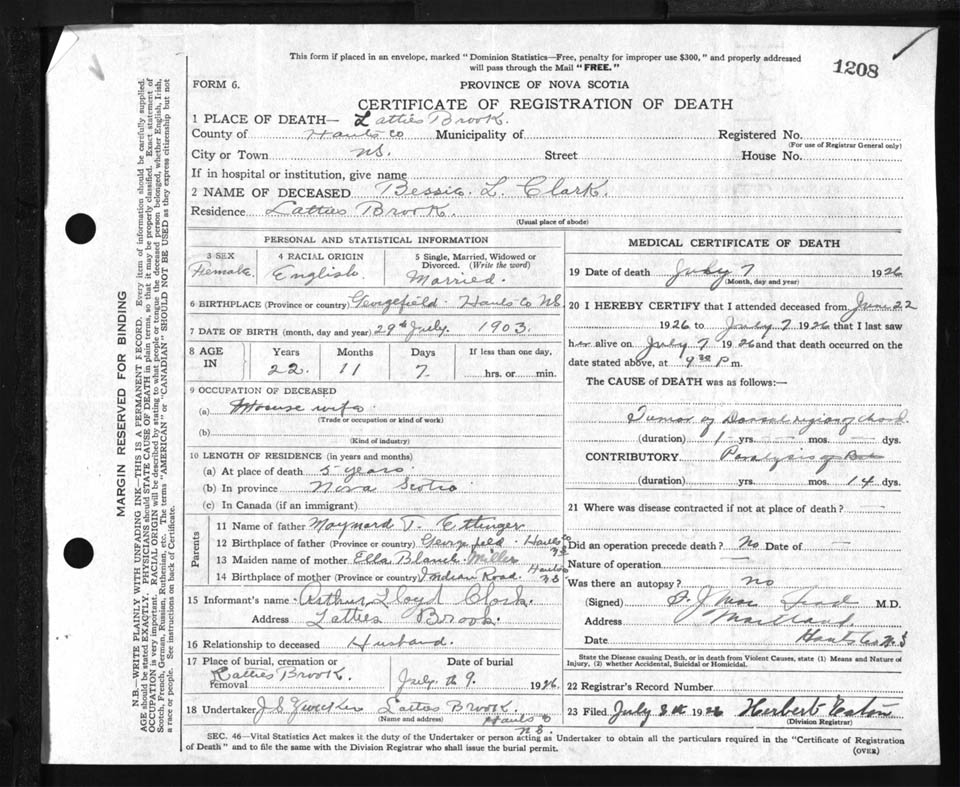 This form if placed in an envelope, marked "Dominion Statistics—Free, penalty for improper use $300," and properly addressed
will pass through the Mail "FREE."
1208
FORM 6.
PROVINCE OF NOVA SCOTIA
CERTIFICATE OF REGISTRATION OF DEATH
1 PLACE OF DEATH— Latties Brook.
County of Hants Co Municipality of Registered No.
(For use of Registrar General only)
City or Town N.S. Street House No.
If in hospital or institution, give name
2 NAME OF DECEASED Bessie L. Clark.
Residence Latties Brook.
(Usual place of abode)
PERSONAL AND STATISTICAL INFORMATION
3 SEX 4 RACIAL ORIGIN 5 Single, Married, Widowed or
Divorced. (Write the word)
Female. English. Married.
6 BIRTHPLACE (Province or country) Georgefield. Hants Co N.S.
7 DATE OF BIRTH (month, day and year) 29th July. 1903.
8 AGE IN Years Months Days If less than one day,
22. 11 7. hrs. or min.
9 OCCUPATION OF DECEASED
(a) House wife.
(Trade or occupation or kind of work)
(b)
(Kind of industry)
10 LENGTH OF RESIDENCE (in years and months)
(a) At place of death 5 years
(b) In province Nova Scotia
(c) In Canada (if an immigrant)
Parents
11 Name of father Maynard T. Ettinger
12 Birthplace of father (Province or country) Georgefield. Hants Co N.S
13 Maiden name of mother Ella Blanch Miller
14 Birthplace of mother (Province or country) Indian Road. Hants N.S
15 Informant's name Arthur Lloyd Clark.
Address Latties Brook.
16 Relationship to deceased Husband.
17 Place of burial, cremation or removal Date of burial
Latties Brook. July th 9. 1926.
18 Undertaker J.S. Latties Brook.
(Name and address) Hants Co
N.S.
MEDICAL CERTIFICATE OF DEATH
19 Date of death July 7 1926
(Month, day and year)
20 I HEREBY CERTIFY that I attended deceased from June 22
1926 to July 7 1926 that I last saw
her alive on July 7 1926 and that death occurred on the
date stated above, at 9 30 P m.
The CAUSE of DEATH was as follows:—
Tumor of Dorsal region of chord
(duration) 1 yrs. — mos. — dys.
CONTRIBUTORY Paralysis of
(duration) yrs. mos. 14 dys.
21 Where was disease contracted if not at place of death? —
Did an operation precede death? No Date of —
Nature of operation —
Was there an autopsy? no
(Signed) F. J. M.D.
Address Maitland
Date Hants Co N.S
State the Disease causing Death, or in death from Violent Causes, state (1) Means and Nature of
Injury, (2) whether Accidental, Suicidal or Homicidal.
22 Registrar's Record Number
23 Filed July 8th 1926 Herbert Eaton
(Division Registrar)
SEC. 46—Vital Statistics Act makes it the duty of the Undertaker or person acting as Undertaker to obtain all the particulars required in the "Certificate of Registration
of Death" and to file the same with the Division Registrar who shall issue the burial permit.
(OVER)
MARGIN RESERVED FOR BINDING
N.B.—WRITE PLAINLY WITH UNFADING INK—THIS IS A PERMANENT RECORD. Every item of information should be carefully supplied.
AGE should be stated EXACTLY. PHYSICIANS should STATE CAUSE OF DEATH in plain terms, so that it may be properly classified. Exact statement of
OCCUPATION is very important. RACIAL ORIGIN will be described by stating to what people or tongue the deceased person belonged, whether English, Irish,
Scotch, French, German, Russian, Ruthenian, etc. The terms "AMERICAN" or "CANADIAN" SHOULD NOT BE USED as they express citizenship but not
a race or people. See instructions on back of Certificate.